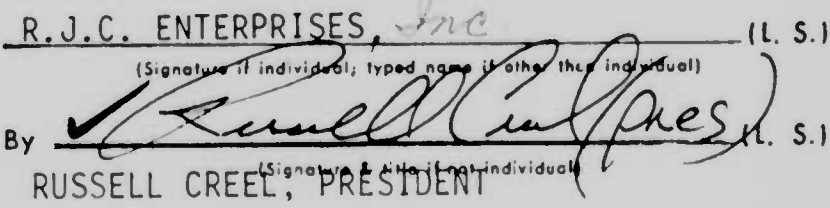 R.J.C. ENTERPRISES, Inc (L. S.)
(Signature if individual; typed name if other than individual)
By Russell Creel (Pres) (L. S.)
(Signature & title if not individual)
RUSSELL CREEL, PRESIDENT